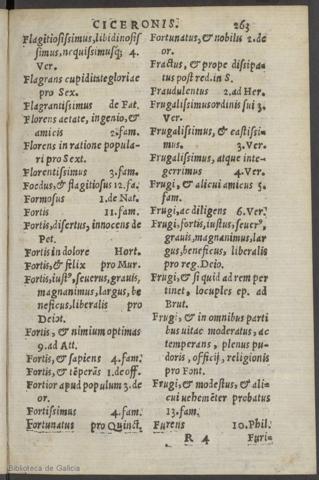 CICERONIS. 263
Flagitiosissimus, libidinosis
simus, nequissimusq; 4.
Ver.
Flagrans cupiditate gloriae
pro Sex.
Flagrantissimus de Fat.
Florens aetate, ingenio, &
amicis 2. fam.
Florens in ratione popula-
ri pro Sext.
Florentissimus 3. fam.
Foedus, & flagitiosus 12. fa.
Formosus 1. de Nat.
Fortis 11. fam.
Fortis, disertus, innocens de
Pet.
Fortis in dolore Hort.
Fortis, & felix pro Mur.
Fortis, iustꝰ, seuerus, grauis,
magnanimus, largus, be
neficus, liberalis pro
Deiot.
Fortis, & nimium optimas
9. ad Att.
Fortis, & sapiens 4. fam.
Fortis, & tēperās 1. de off.
Fortior apud populum 3. de
or.
Fortissimus 4. fam.
Fortunatus pro Quinct.
Fortunatus, & nobilis 2. de
or.
Fractus, & prope dissipa-
tus post red. in S.
Fraudulentus 2. ad Her.
Frugalissimus ordinis sui 3.
Ver.
Frugalissimus, & castissi-
mus. 3. Ver.
Frugalissimus, atque inte-
gerrimus 4. Ver.
Frugi, & alicui amicus 3.
fam.
Frugi, ac diligens 6. Ver.
Frugi, fortis, iustus, seuerꝰ,
grauis, magnanimus, lar
gus, beneficus, liberalis
pro reg. Deio.
Frugi, & si quid ad rem per
tinet, locuples ep. ad
Brut.
Frugi, & in omnibus parti
bus uitae moderatus, ac
temperans, plenus pu-
doris, officij, religionis
pro Font.
Frugi, & modestus, & ali-
cui uehemēter probatus
13. fam.
Furens 10. Phil.
R 4 Furi-
Biblioteca de Galicia